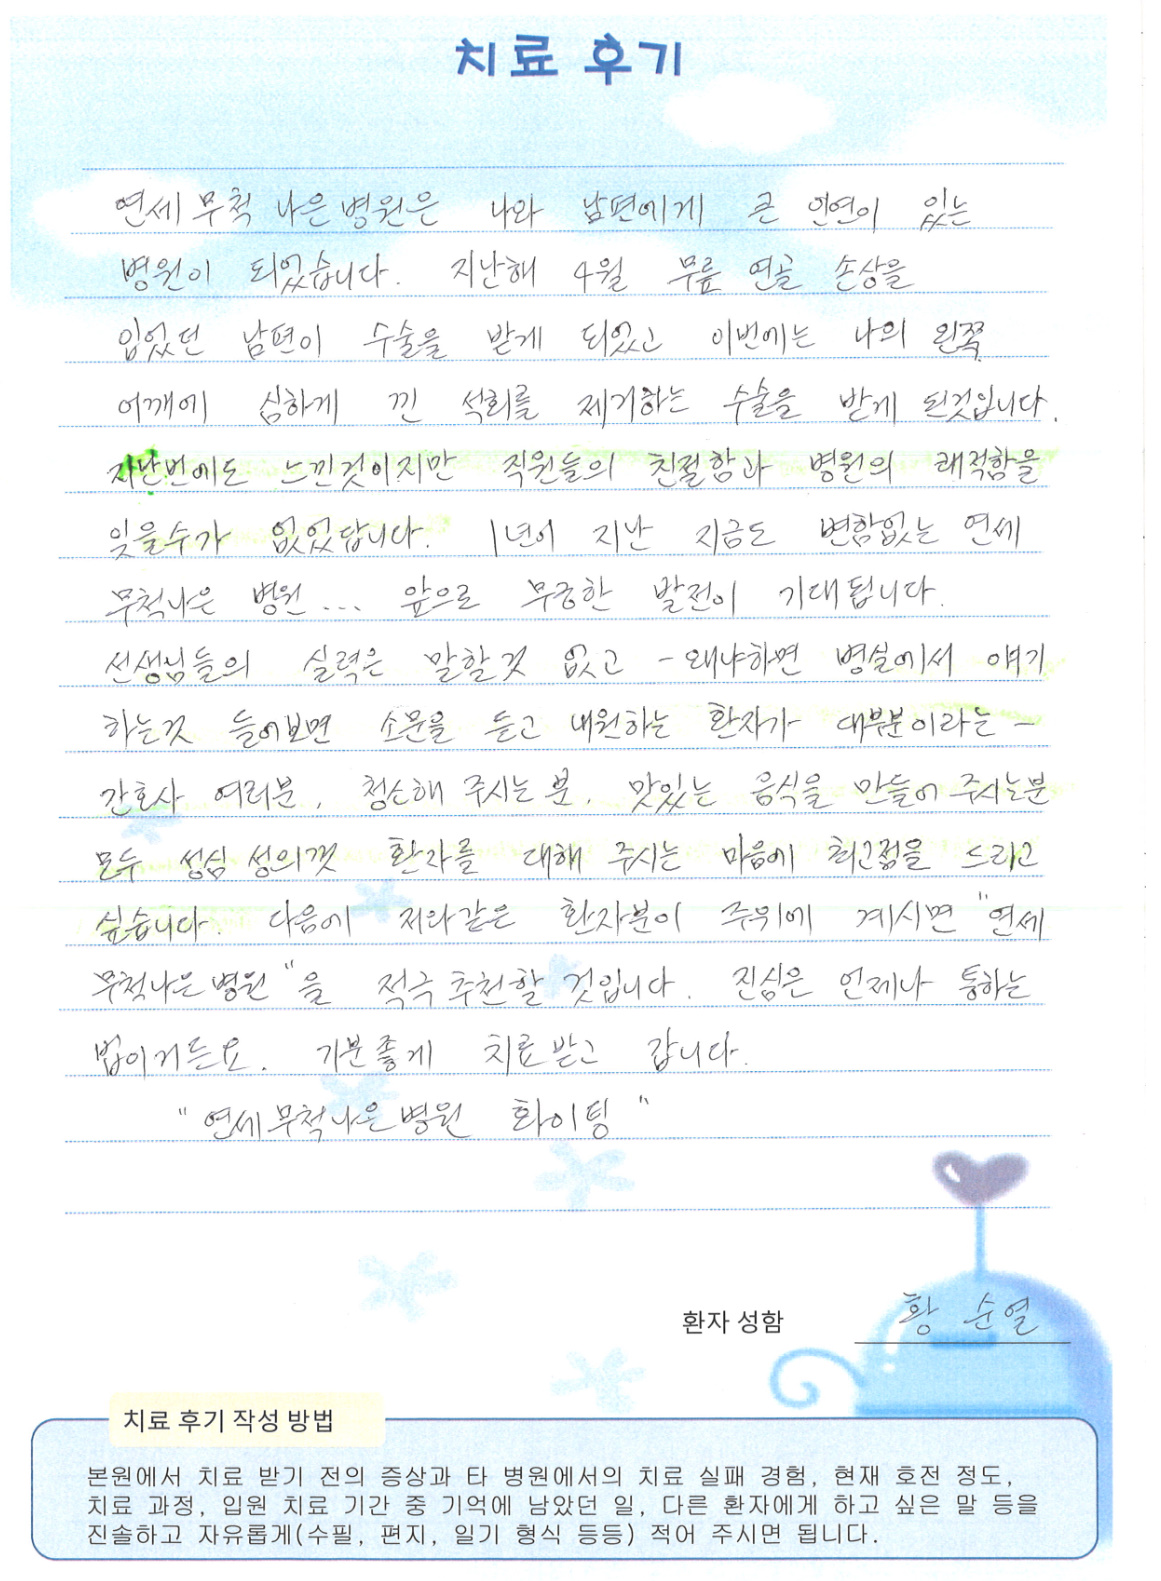 치료 후기
연세 무척 나은 병원은 나와 남편에게 큰 인연이 있는
병원이 되었습니다. 지난해 4월 무릎 연골 손상을
입었던 남편이 수술을 받게 되었고 이번에는 나의 왼쪽
어깨에 심하게 낀 석회를 제거하는 수술을 받게 된것입니다.
지난번에도 느낀것이지만 직원들의 친절함과 병원의 쾌적함을
잊을수가 없었답니다. 1년이 지난 지금도 변함없는 연세
무척나은 병원... 앞으로 무궁한 발전이 기대됩니다.
선생님들의 실력은 말할것 없고 - 왜냐하면 병실에서 얘기
하는것 들어보면 소문을 듣고 내원하는 환자가 대부분이라는 -
간호사 여러분, 청소해 주시는 분, 맛있는 음식을 만들어 주시는분
모두 성심 성의껏 환자를 대해 주시는 마음에 최고점을 드리고
싶습니다. 다음에 저와같은 환자분이 주위에 계시면 "연세
무척나은 병원"을 적극 추천할 것입니다. 진심은 언제나 통하는
법이거든요. 기분좋게 치료받고 갑니다.
"연세무척나은병원 화이팅"
환자 성함 황 순열
치료 후기 작성 방법
본원에서 치료 받기 전의 증상과 타 병원에서의 치료 실패 경험, 현재 호전 정도,
치료 과정, 입원 치료 기간 중 기억에 남았던 일, 다른 환자에게 하고 싶은 말 등을
진솔하고 자유롭게(수필, 편지, 일기 형식 등등) 적어 주시면 됩니다.